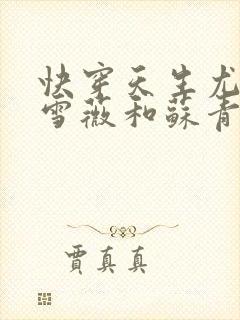 快穿天生尤
雪薇和蘇青
賈真真